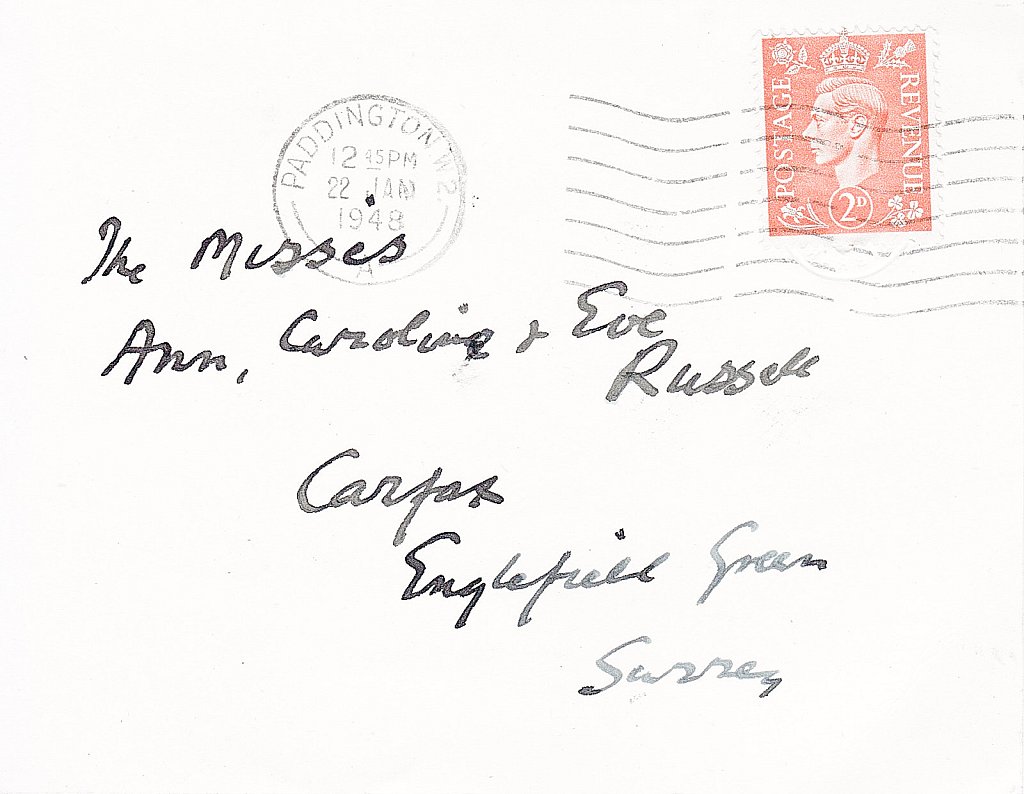 PADDINGTON W2.
12 45PM
22 JAN
1948
A
POSTAGE
REVENUE
2D
The Misses
Ann, Caroline & Eve
Russell
Carfax
Englefield Green
Surrey